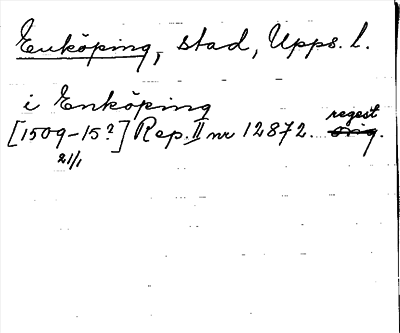 Enköping, stad, Upps. l.
i Enköping
[1509-15?] Rep. II nr 12872. regest orig.
21/1